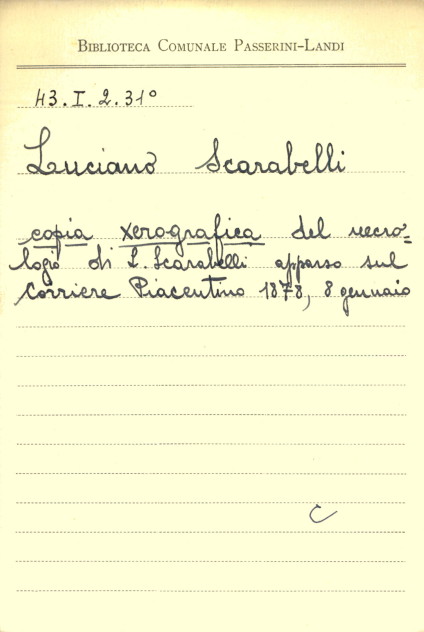 BIBLIOTECA COMUNALE PASSERINI-LANDI
43.I.2.31°
Luciano Scarabelli
copia xerografica del necro=
logio di L. Scarabelli apparso sul
Corriere Piacentino 1878, 8 gennaio
C